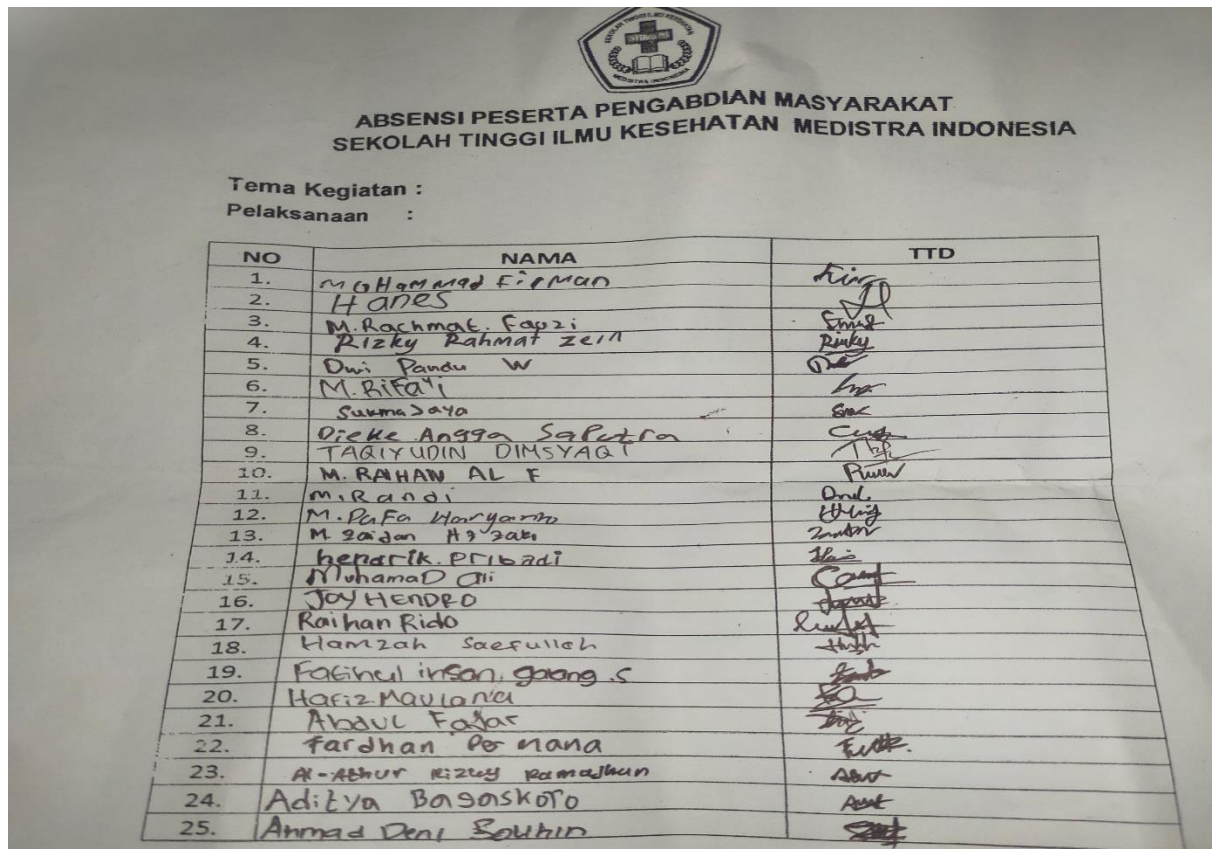 SEKOLAH TINGGI ILMU KESEHATAN
MEDISTRA INDONESIA
ABSENSI PESERTA PENGABDIAN MASYARAKAT
SEKOLAH TINGGI ILMU KESEHATAN MEDISTRA INDONESIA
Tema Kegiatan :
Pelaksanaan :
NO NAMA TTD
1. MoHammad Firman
2. Hanes
3. M.Rachmat. Fauzi
4. Rizky Rahmat zein Rizky
5. Dwi Pandu W
6. M. Rifa'i
7. Sukma Jaya
8. Dieke Angga Saputra
9. TAQIYUDIN DIMSYAQI
10. M. RAIHAN AL F
11. M. Randi
12. M. Dafa Haryanto
13. M Zaidan
14. hendrik. Pribadi
15. MuhamaD Ali
16. JOY HENDRO
17. Raihan Rido
18. Hamzah Saefulloh
19. insan, S
20. Hafiz Maulana
21. Abdul Fajar
22. Fardhan Permana
23. Al-Athur Rizky Ramadhan
24. Aditya Bagaskoro
25. Ahmad Deni